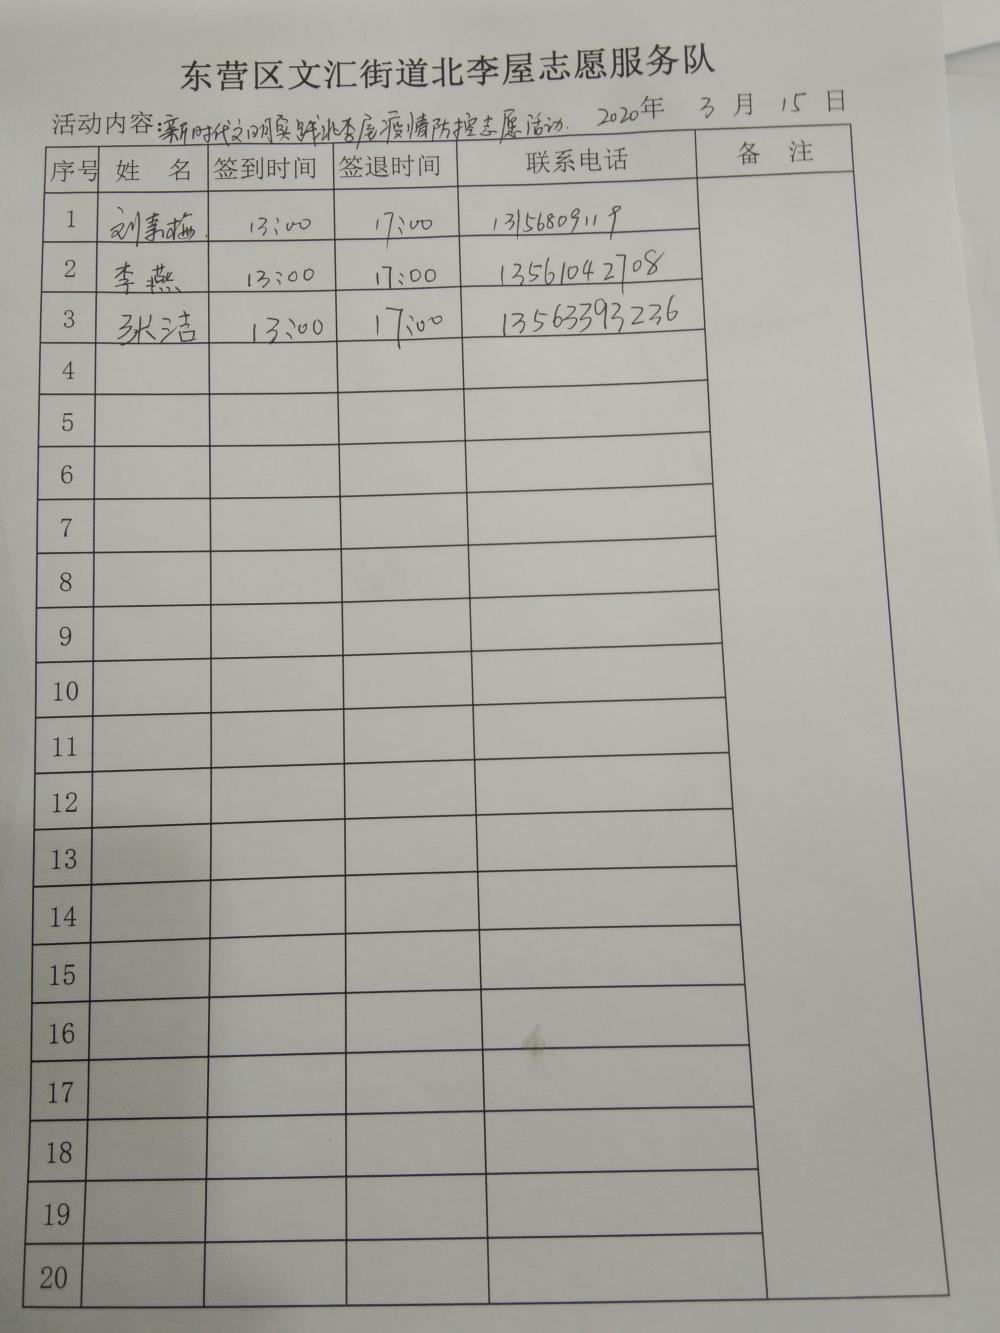 东营区文汇街道北李屋志愿服务队
活动内容:新时代文明实践北李屋疫情防控志愿活动. 2020年 3 月 15 日
序号 姓 名 签到时间 签退时间 联系电话 备 注
1 刘素梅 13:00 17:00 13156809119
2 李燕 13:00 17:00 13561042708
3 张洁 13:00 17:00 13563393236
4
5
6
7
8
9
10
11
12
13
14
15
16
17
18
19
20